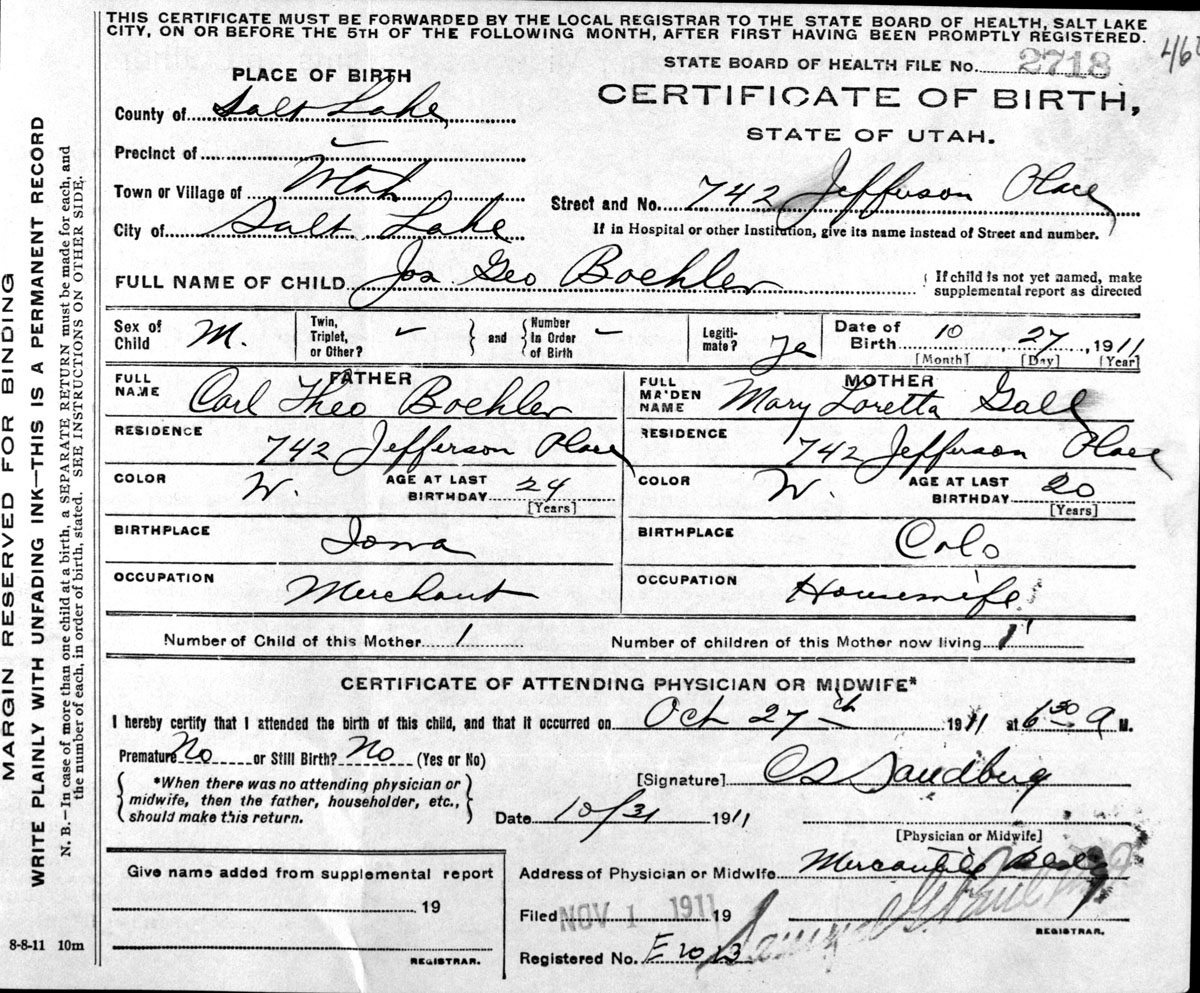 THIS CERTIFICATE MUST BE FORWARDED BY THE LOCAL REGISTRAR TO THE STATE BOARD OF HEALTH, SALT LAKE
CITY, ON OR BEFORE THE 5TH OF THE FOLLOWING MONTH, AFTER FIRST HAVING BEEN PROMPTLY REGISTERED.
STATE BOARD OF HEALTH FILE No. 2718
PLACE OF BIRTH
CERTIFICATE OF BIRTH,
STATE OF UTAH.
County of Salt Lake
Precinct of
Town or Village of Utah
City of Salt Lake
Street and No. 742 Jefferson Place
If in Hospital or other Institution, give its name instead of Street and number.
FULL NAME OF CHILD Jos. Geo Boehler
{ If child is not yet named, make
supplemental report as directed
Sex of Child M.
Twin, Triplet, or Other? – } and { Number In Order of Birth –
Legiti- mate? ye
Date of Birth 10 27, 1911
[Month] [Day] [Year]
FATHER
FULL NAME Carl Theo Boehler
RESIDENCE 742 Jefferson Place
COLOR W. AGE AT LAST BIRTHDAY 24
[Years]
BIRTHPLACE Iowa
OCCUPATION Merchant
MOTHER
FULL MAIDEN NAME Mary Loretta Gall
RESIDENCE 742 Jefferson Place
COLOR W. AGE AT LAST BIRTHDAY 20
[Years]
BIRTHPLACE Colo
OCCUPATION Housewife
Number of Child of this Mother 1 Number of children of this Mother now living 1
CERTIFICATE OF ATTENDING PHYSICIAN OR MIDWIFE*
I hereby certify that I attended the birth of this child, and that it occurred on Oct 27th 1911 at 6 30 a M.
Premature No or Still Birth? No (Yes or No)
{ *When there was no attending physician or
midwife, then the father, householder, etc.,
should make this return. }
[Signature] Sandberg
Date 10/31 1911
[Physician or Midwife]
Address of Physician or Midwife Mercantile
Give name added from supplemental report
19
REGISTRAR.
Filed NOV 1 1911 19
REGISTRAR.
Registered No. E 1013
8-8-11 10m
MARGIN RESERVED FOR BINDING
WRITE PLAINLY WITH UNFADING INK—THIS IS A PERMANENT RECORD
N. B.—In case of more than one child at a birth, a SEPARATE RETURN must be made for each, and
the number of each, in order of birth, stated. SEE INSTRUCTIONS ON OTHER SIDE.